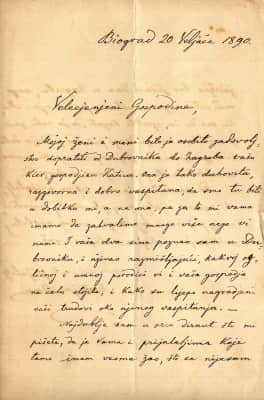 Biograd 20 Veljače 1890.
Velecjenjeni Gospodine,
Mojoj ženi i meni bilo je osobito zadovolj-
stvo dopratiti od Dubrovnika do Zagreba vašu
kćer, gospodjicu Katicu. Ona je tako duhovita,
razgovorna i dobro vaspitana, da smo tu bili
u dobitku mi, a ne ona, pa za to mi vama
imamo da zahvalimo mnogo više nego vi
nama. I vaša dva sina poznao sam u Du-
brovniku, i nijesu najmošljajniji, kakvoj
i vi i vaša gospodja
na čelu stojite, i kako su lijepo nagrađeni
vaši trudovi oko njinog vaspitanja. —
Najdublje sam u srcu dirnut što mi
pišete, da je vama i prijateljima koje
tamo imam veoma žao, što se nijesam